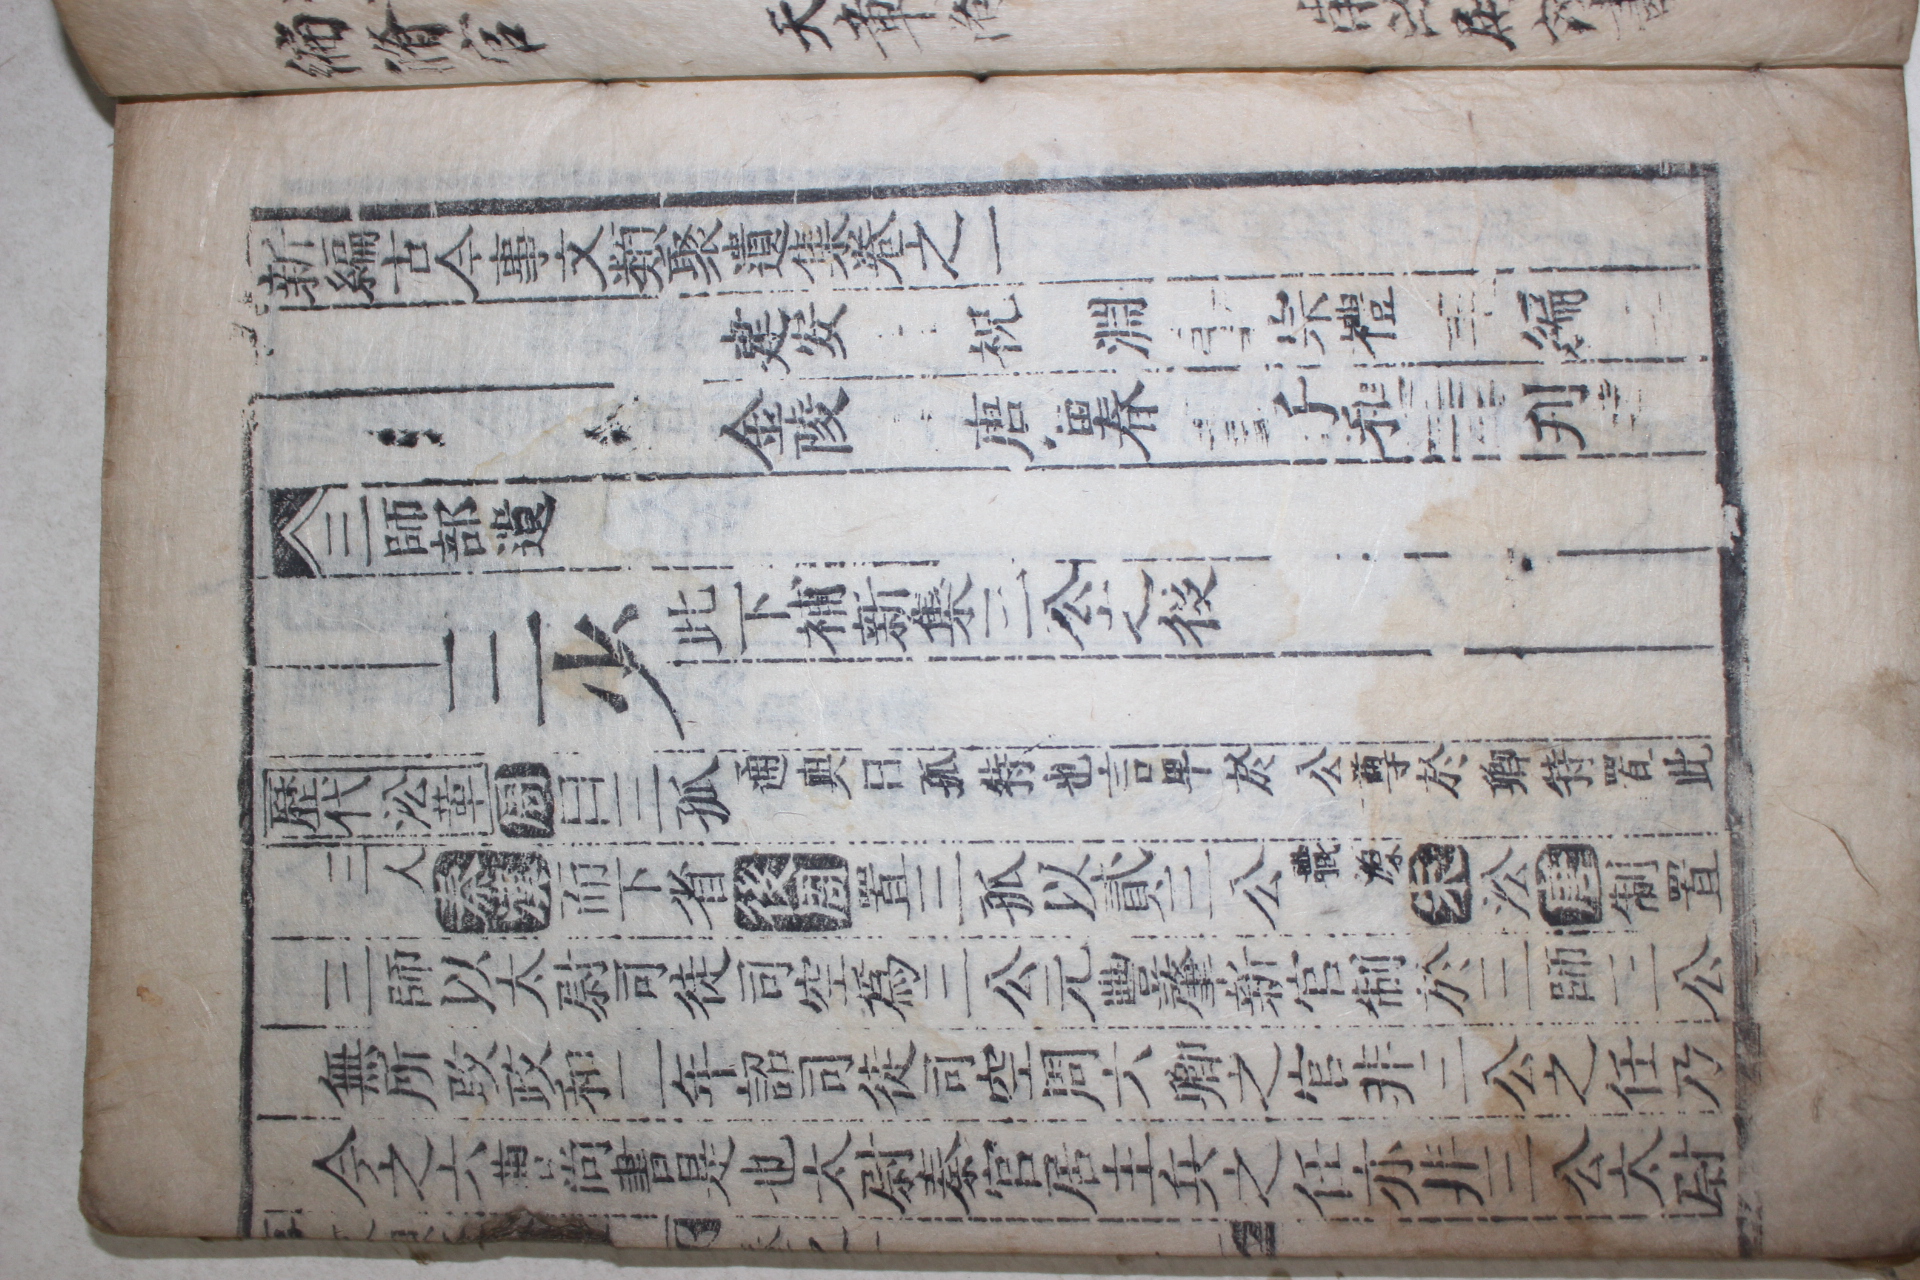 新編古今事文類聚遺集卷之一
建安 祝 淵 宗禮 編
金陵 唐富春 子和 刊
三師部遺
三少 此下補新集三公之後
歷代沿革 周曰三孤 通典曰孤特也言卑於公尊於卿特置此
三人 秦漢而下省 後周置三孤以貳三公 職源 宋沿唐制置
三師以太尉司徒司空爲三公元豐肇新官制於三師三公
無所改政和二年詔司徒司空周六卿之官非三公之任乃
今之六曹尚書是也太尉秦官居主兵之任亦非三公太尉